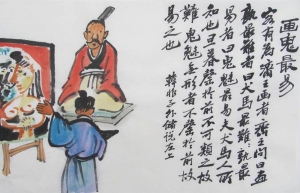 画鬼最易
客有为齊王画者齊王問曰画
孰最難者曰犬馬最難孰最
易者曰鬼魅最易夫犬馬人所
知也旦暮罄於前不可類之故
難鬼魅無形者不罄於前故
易之也
韓非子外儲說左上